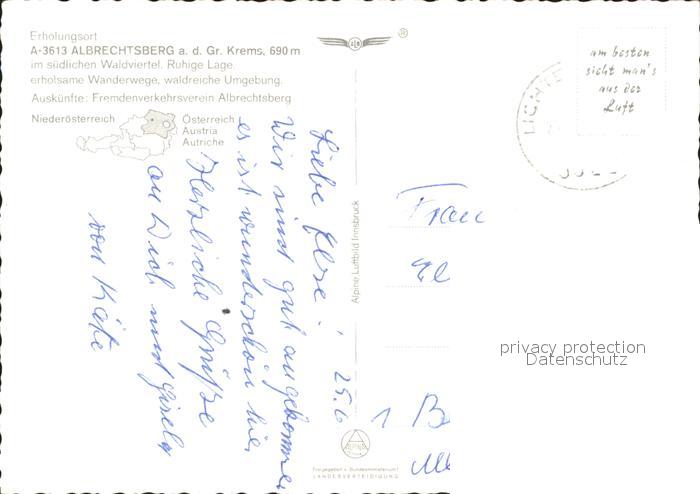 Erholungsort
A-3613 ALBRECHTSBERG a. d. Gr. Krems, 690 m
im südlichen Waldviertel. Ruhige Lage.
erholsame Wanderwege, waldreiche Umgebung.
Auskünfte: Fremdenverkehrsverein Albrechtsberg
Niederösterreich
Österreich
Austria
Autriche
®
am besten
sieht man's
aus der
Luft
LICHTE
Liebe Else! 25.6
Wir sind gut angekommen
es ist wunderschön hier
Herzliche Grüße
an Dich und Gisela
von Käte
Alpine Luftbild Innsbruck
Frau
El
1 B
privacy protection
Datenschutz
Freigegeben v. Bundesministerium f.
LANDESVERTEIDIGUNG